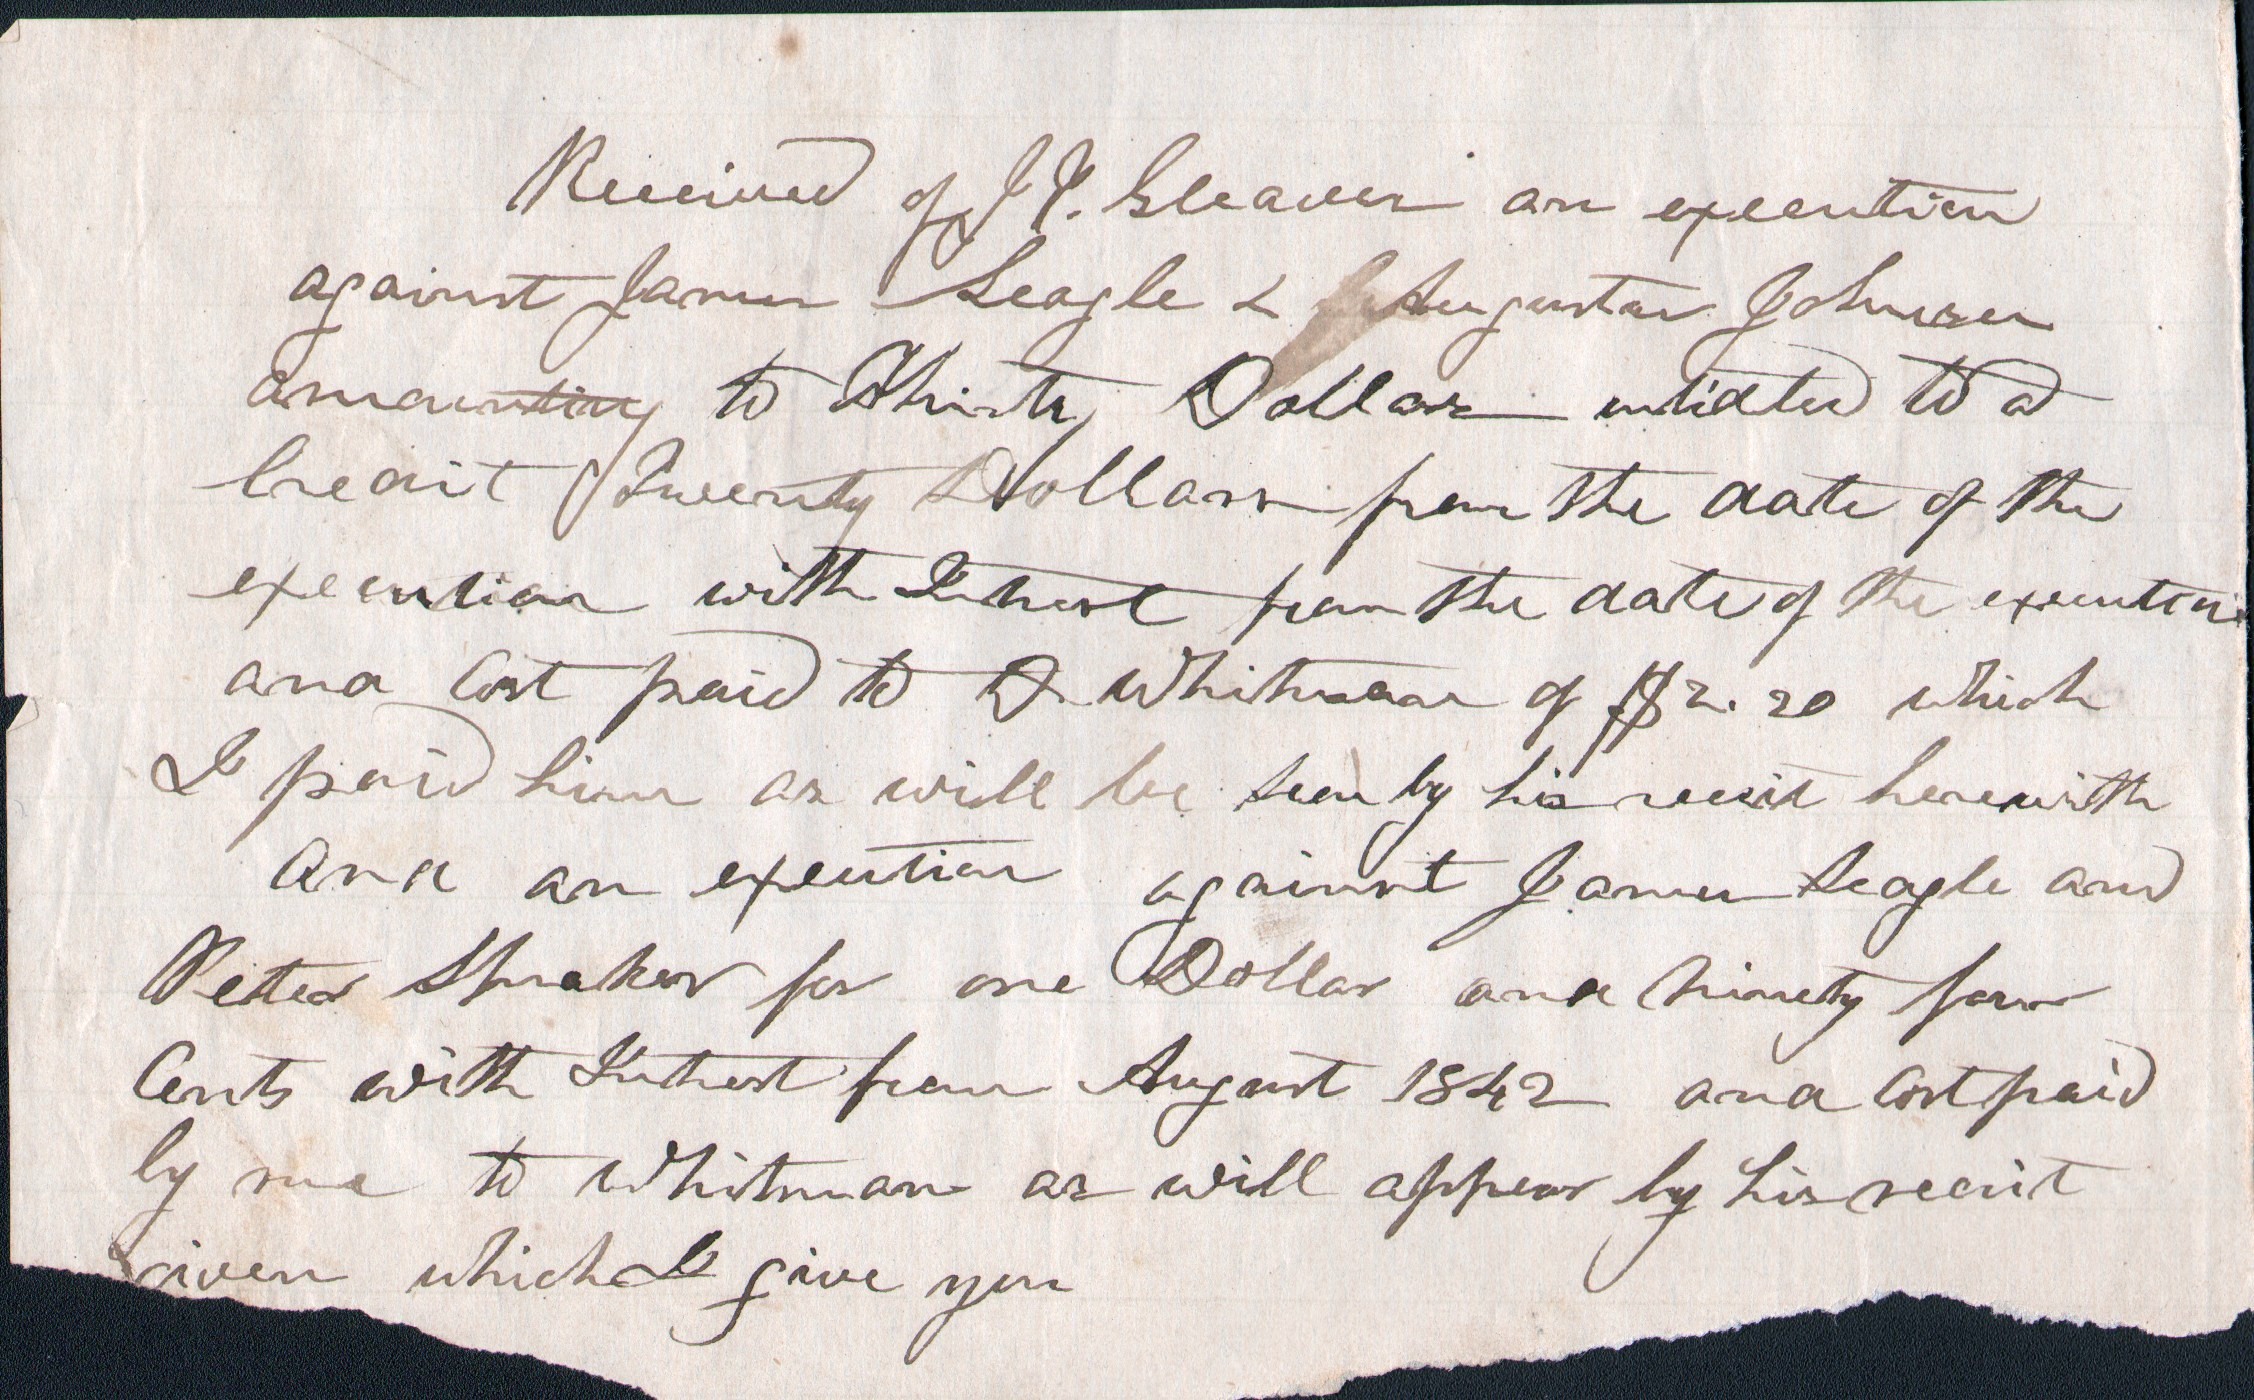 Received of J. T. Cleaver an execution
against James Seagle & Augustus Johnson
amounting to Thirty Dollars intidled to a
Credit Twenty Dollars from the date of the
execution with Intrest from the date of the execution
and Cost paid to D Whitman of $2.20 which
I paid him as will be seen by his receit herewith
And an exention against James Seagle and
Peter Spraker for one Dollar and ninety four
Cents with Intrest from August 1842 and Cost paid
by me to Whitman as will appear by his receit
given which I give you